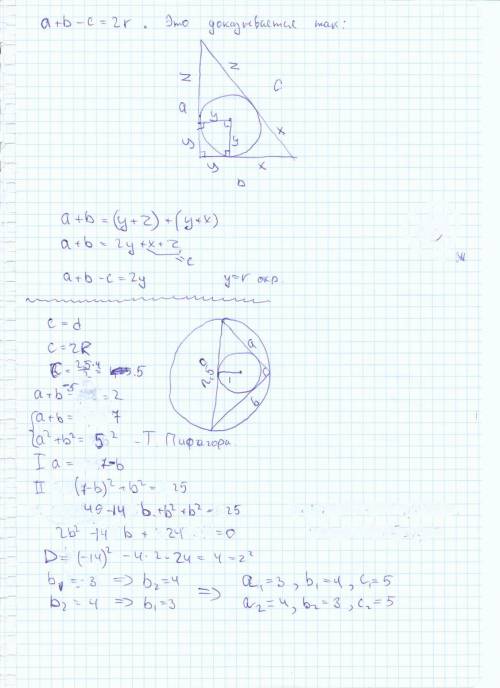 a+b-c=2r. Это доказывается так:
z
z
c
a
y
y
y
x
y
x
b
a+b=(y+z)+(y+x)
a+b=2y+x+z
=c
a+b-c=2y y=r окр.
c=d
c=2R
a
c
2,5·2
1
b
a+b-5=2
a+b= 7
a²+b²= 5² - Т. Пифагора.
I a= 7-b
II (7-b)²+b²= 25
49-14 b+b²+b²= 25
2b²-14 b+ 24 =0
D=(-14)²-4·2·24=4=2²
b₁=3 => b₂=4 => a₁=3, b₁=4, c₁=5
b₂=4 => b₁=3 a₂=4, b₂=3, c₂=5